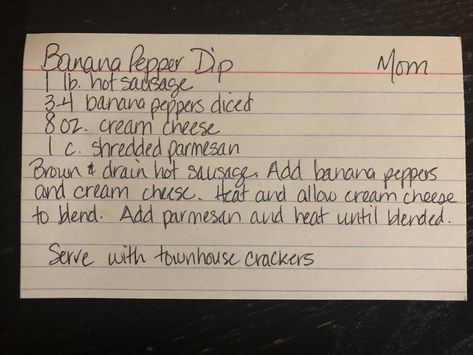 Banana Pepper Dip Mom
1 lb. hot sausage
3-4 banana peppers diced
8 oz. cream cheese
1 c. shredded parmesan
Brown & drain hot sausage. Add banana peppers
and cream cheese. Heat and allow cream cheese
to blend. Add parmesan and heat until blended.
Serve with townhouse crackers